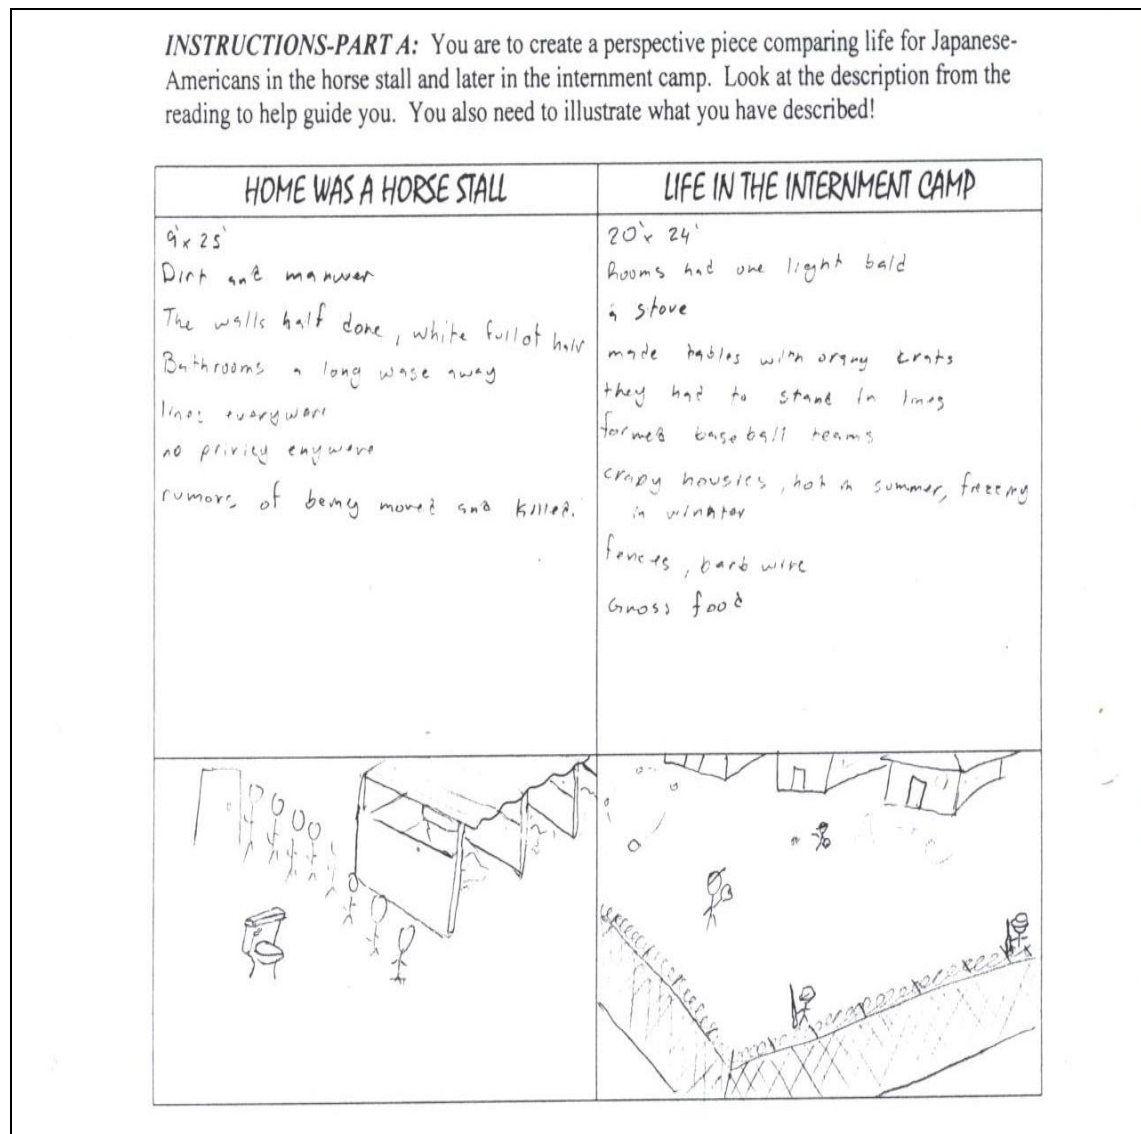 INSTRUCTIONS-PART A: You are to create a perspective piece comparing life for Japanese-
Americans in the horse stall and later in the internment camp. Look at the description from the
reading to help guide you. You also need to illustrate what you have described!
HOME WAS A HORSE STALL
9' x 25'
Dirt and manuver
The walls half done, white full of hair
Bathrooms a long wase away
lines everywari
no privicy enywere
rumors of being moved and killed.
LIFE IN THE INTERNMENT CAMP
20' x 24'
Rooms had one light bald
a stove
made tables with orgny crats
they had to stand in lines
formed baseball teams
crapy housies, hot in summer, freezing
in winnter
fences, barb wire
Gross food